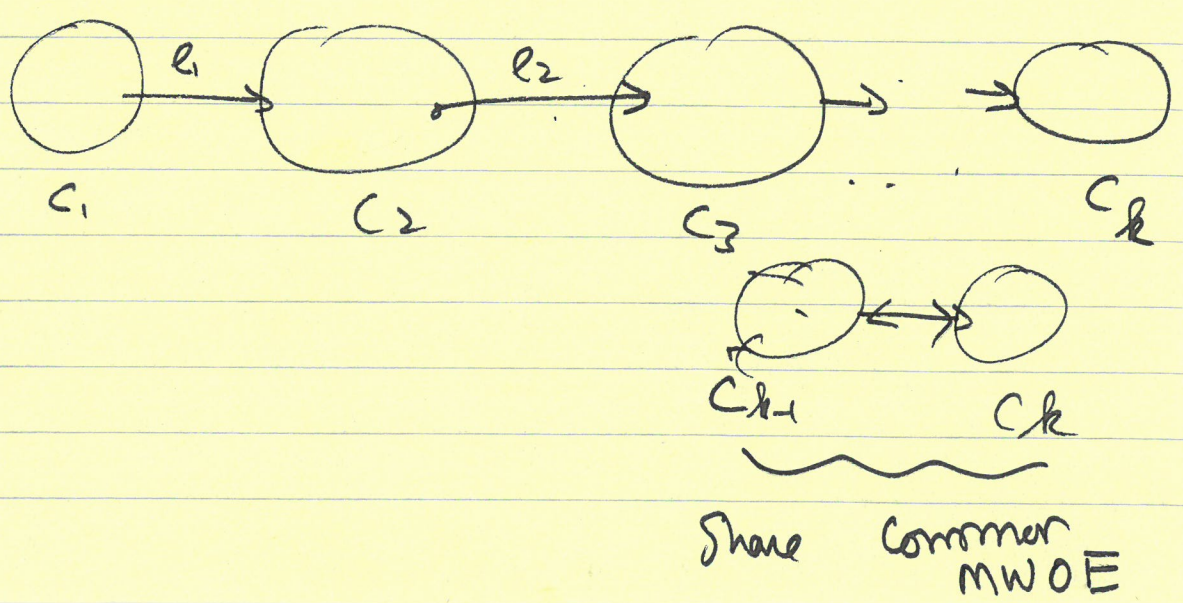 e₁ e₂
C₁ C₂ C₃ .. Cₖ
Cₖ₋₁ Cₖ
Share Common
MWOE